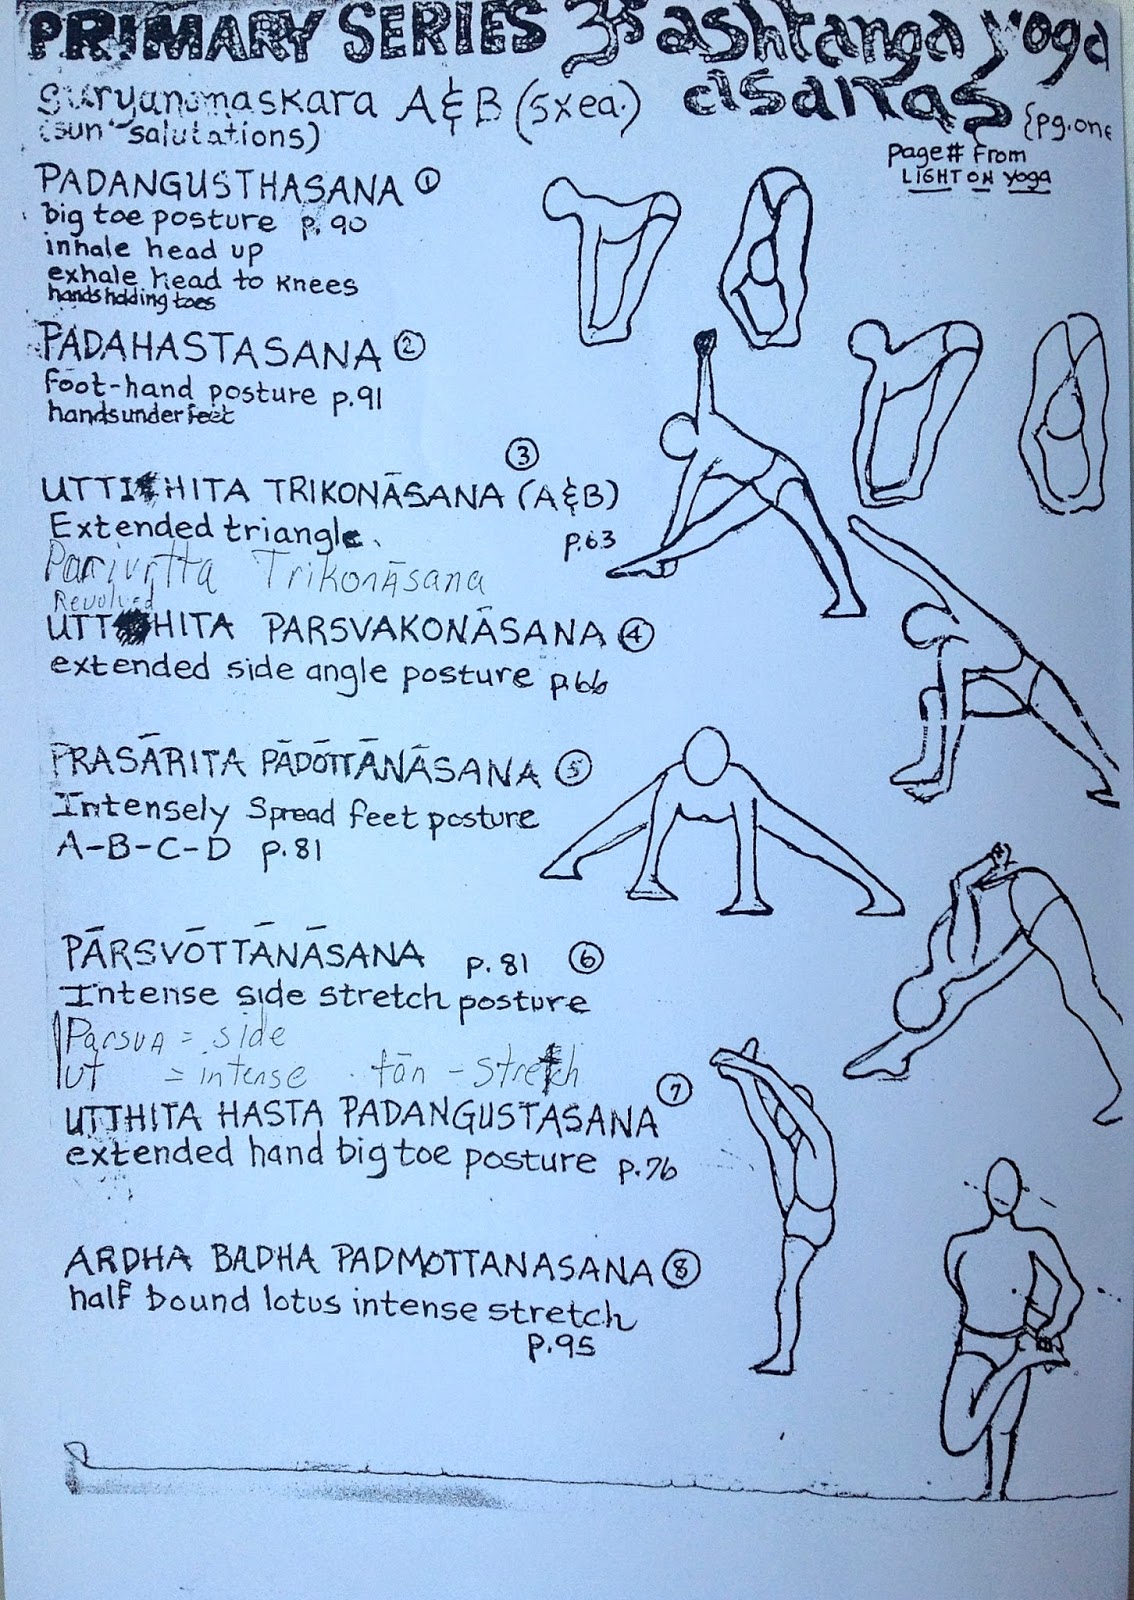 PRIMARY SERIES ॐ ashtanga yoga
asanas
suryanamaskara A & B (5x ea.)
(sun salutations)
{pg. one
page# From
LIGHT ON yoga
PADANGUSTHASANA ①
big toe posture p. 90
inhale head up
exhale head to knees
hands holding toes
PADAHASTASANA ②
foot-hand posture p.91
hands under feet
③
UTTIHITA TRIKONĀSANA (A&B)
Extended triangle. p.63
Parivrtta Trikonāsana
Revolved
UTTHITA PARSVAKONĀSANA ④
extended side angle posture p.66
PRASĀRITA PĀDŌTTĀNĀSANA ⑤
Intensely Spread feet posture
A-B-C-D p.81
PĀRSVŌTTĀNĀSANA p. 81 ⑥
Intense side stretch posture
Parsva = side
ut = intense tān - stretch
UTTHITA HASTA PADANGUSTASANA ⑦
extended hand big toe posture p.76
ARDHA BADHA PADMOTTANASANA ⑧
half bound lotus intense stretch
p.95